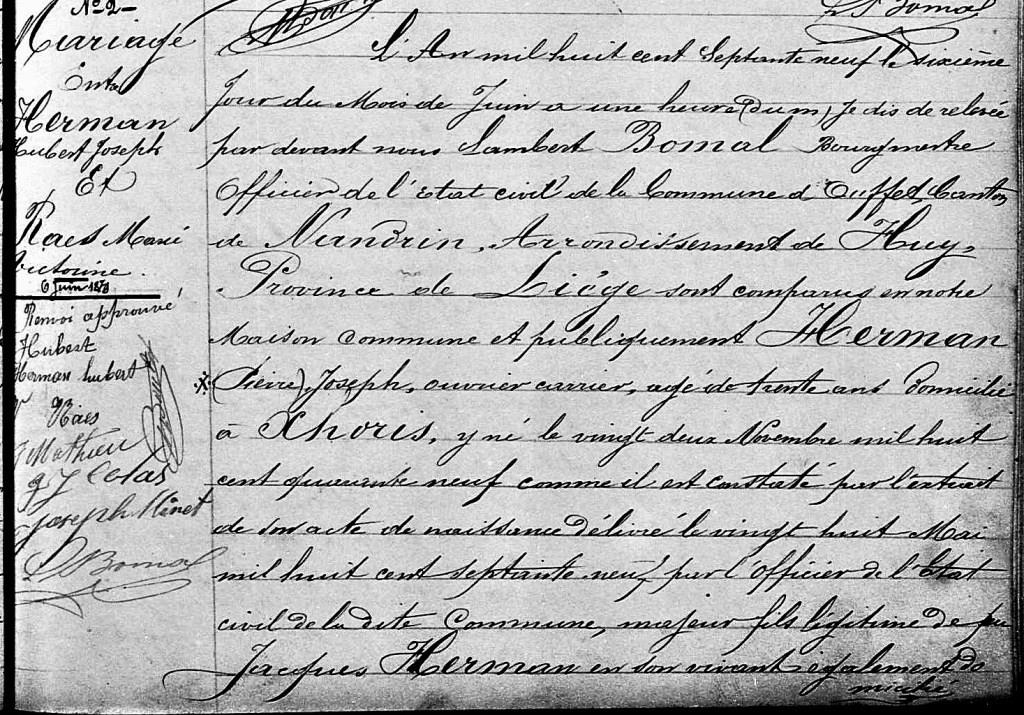 N° 2
Mariage
Entre
Herman
Hubert Joseph
Et
Raes Marie
Victorine.
6 Juin 1879
Renvoi approuvé
Hubert
Herman hubert
Raes
Mathieu
g J Colas
Joseph Minet
L Bomal
L Bomal
L'An mil huit cent Septante neuf le Sixième
Jour du Mois de Juin a une heure (du m) Je dis de relevée
par devant nous Lambert Bomal Bourgmestre
Officier de l'Etat civil de la Commune d'Ouffet, Canton
de Nandrin, Arrondissement de Huy,
Province de Liége sont comparus en notre
Maison commune et publiquement Herman
(Pierre) Joseph, ouvrier carrier, agé de trente ans domicilié
à Xhoris, y né le vingt deux Novembre mil huit
cent quarante neuf comme il est constaté par l'extrait
de son acte de naissance délivré le vingt huit Mai
mil huit cent septante neuf, par l'officier de l'Etat
civil de la dite Commune, majeur fils légitime de feu
Jacques Herman en son vivant également do
micilié